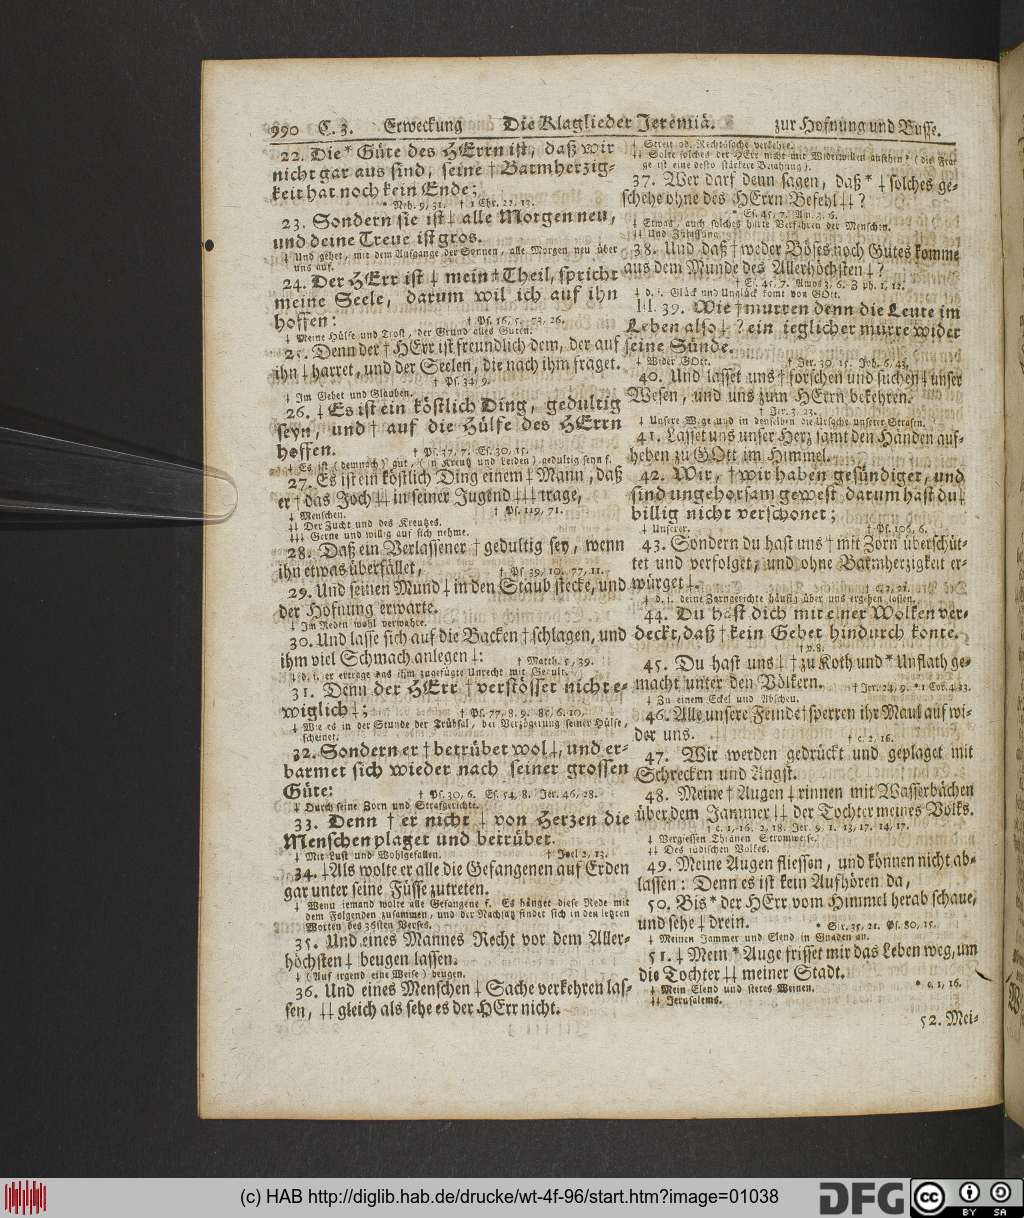 990 C. 3. Erweckung Die Klaglieder Jeremiä. zur Hofnung und Busse.
22. Die * Güte des HErrn ist, daß wir
nicht gar aus sind, seine † Barmherzig-
keit hat noch kein Ende;
* Neh. 9, 31. † 1 Chr. 22, 13.
23. Sondern sie ist ‡ alle Morgen neu,
und deine Treue ist gros.
‡ Und gehet, mit dem Aufgange der Sonnen, alle Morgen neu über
uns auf.
24. Der HErr ist ‡ mein † Theil, spricht
meine Seele, darum wil ich auf ihn
hoffen:
† Ps. 16, 5. 73, 26.
‡ Meine Hülfe und Trost, der Grund alles Guten.
25. Denn der † HErr ist freundlich dem, der auf
ihn ‡ harret, und der Seelen, die nach ihm fraget.
† Ps. 34, 9.
‡ Im Gebet und Glauben.
26. ‡ Es ist ein köstlich Ding, gedultig
seyn, und † auf die Hülfe des HErrn
hoffen.
† Ps. 37, 7. Es. 30, 15.
‡ Es ist (demnach) gut, (in Kreutz und Leiden) gedultig seyn s.
27. Es ist ein köstlich Ding einem ‡ Mann, daß
er † das Joch ‡‡ in seiner Jugend ‡‡‡ trage,
‡ Menschen. † Ps. 119, 71.
‡‡ Der Zucht und des Kreutzes.
‡‡‡ Gerne und willig auf sich nehme.
28. Daß ein Verlassener † gedultig sey, wenn
ihn etwas überfället,
† Ps. 39, 10. 77, 11.
29. Und seinen Mund ‡ in den Staub stecke, und
der Hofnung erwarte.
‡ Im Reden wohl verwahre.
30. Und lasse sich auf die Backen † schlagen, und
ihm viel Schmach anlegen ‡:
† Matth. 5, 39.
‡ d. i. er ertrage das ihm zugefügte Unrecht mit Gedult.
31. Denn der HErr † verstösset nicht e-
wiglich ‡;
† Ps. 77, 8. 9. 85, 6. 10.
‡ Wie es in der Stunde der Trübsal, bei Verzögerung seiner Hülfe,
scheinet.
32. Sondern er † betrübet wol ‡, und er-
barmet sich wieder nach seiner grossen
Güte:
† Ps. 30, 6. Es. 54, 8. Jer. 46, 28.
‡ Durch seine Zorn und Strafgerichte.
33. Denn † er nicht ‡ von Herzen die
Menschen plaget und betrübet.
‡ Mit Lust und Wohlgefallen. † Joel 2, 13.
34. ‡ Als wolte er alle die Gefangenen auf Erden
gar unter seine Füsse zutreten.
‡ Wenn iemand wolte alle Gefangene s. Es hänget diese Rede mit
dem Folgenden zusammen, und der Nachsatz findet sich in den letzten
Worten des 36sten Verses.
35. Und eines Mannes Recht vor dem Aller-
höchsten ‡ beugen lassen.
‡ (Auf irgend eine Weise) beugen.
36. Und eines Menschen ‡ Sache verkehren las-
sen, ‡‡ gleich als sehe es der HErr nicht.
‡ Streit od. Rechtssache verkehre.
‡‡ Solte solches der HErr nicht mit Widerwillen ansehen? (die Fra-
ge ist eine desto stärkere Bejahung).
37. Wer darf denn sagen, daß * ‡ solches ge-
schehe ohne des HErrn Befehl ‡‡?
* Es. 45, 7. Am. 3, 6.
‡ Etwas, auch solches harte Verfahren der Menschen.
‡‡ Und Zulassung.
38. Und daß † weder Böses noch Gutes komme
aus dem Munde des Allerhöchsten ‡?
† Es. 45, 7. Amos 3, 6. Zeph. 1, 12.
‡ d. i. Glück und Unglück komt von GOtt.
39. Wie † murren denn die Leute im
Leben also ‡? ein ieglicher murre wider
seine Sünde.
‡ Wider GOtt. † Jer. 30, 15. Joh. 6, 43.
40. Und lasset uns † forschen und suchen ‡ unser
Wesen, und uns zum HErrn bekehren.
† Jer. 3, 23.
‡ Unsere Wege und in denselben die Ursache unserer Strafen.
41. Lasset uns unser Herz samt den Händen auf-
heben zu GOtt im Himmel.
42. Wir, † wir haben gesündiger, und
sind ungehorsam gewest, darum hast du ‡
billig nicht verschonet;
‡ Unserer. † Ps. 106, 6.
43. Sondern du hast uns † mit Zorn überschüt-
tet und verfolget, und ohne Barmherzigkeit er-
würget ‡.
† c. 2, 21.
‡ d. i. deine Zorngerichte häufig über uns ergehen lassen.
44. Du hast dich mit einer Wolken ver-
deckt, daß † kein Gebet hindurch konte.
† v. 8.
45. Du hast uns ‡ † zu Koth und * Unflath ge-
macht unter den Völkern.
† Jer. 24, 9. * 1 Cor. 4, 13.
‡ Zu einem Eckel und Abscheu.
46. Alle unsere Feinde † sperren ihr Maul auf wi-
der uns.
† c. 2, 16.
47. Wir werden gedrückt und geplaget mit
Schrecken und Angst.
48. Meine † Augen ‡ rinnen mit Wasserbächen
über dem Jammer ‡‡ der Tochter meines Volks.
† c. 1, 16. 2, 18. Jer. 9, 1. 13, 17. 14, 17.
‡ Vergiessen Thränen Stromweise.
‡‡ Des jüdischen Volkes.
49. Meine Augen fliessen, und können nicht ab-
lassen: Denn es ist kein Aufhören da,
50. Bis * der HErr vom Himmel herab schaue,
und sehe ‡ drein.
* Sir. 35, 21. Ps. 80, 15.
‡ Meinen Jammer und Elend in Gnaden an.
51. ‡ Mein * Auge frisset mir das Leben weg, um
die Tochter ‡‡ meiner Stadt.
* c. 1, 16.
‡ Mein Elend und stetes Weinen.
‡‡ Jerusalems.
52. Mei-
(c) HAB http://diglib.hab.de/drucke/wt-4f-96/start.htm?image=01038
DFG
cc BY SA